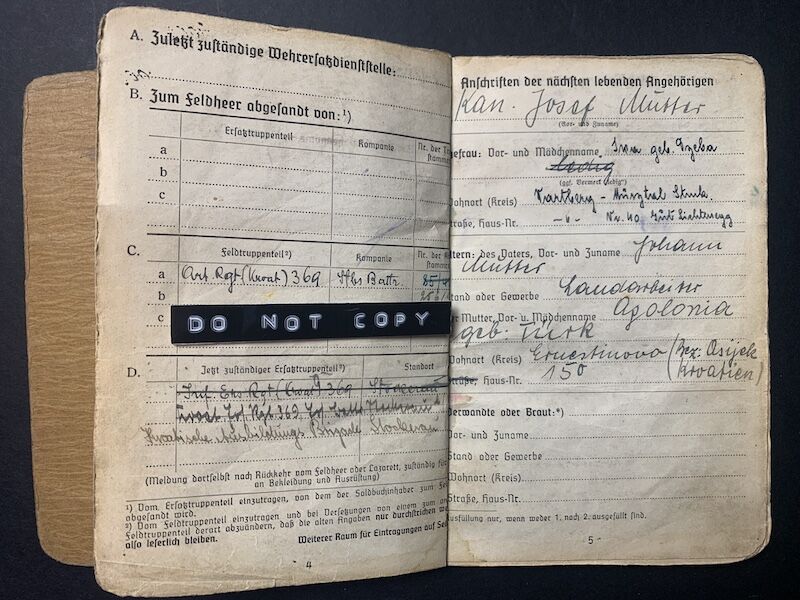 A. Zuletzt zuständige Wehrersatzdienststelle:
B. Zum Feldheer abgesandt von:¹)
Ersatztruppenteil
Kompanie
Nr. der
stamm
a
b
c
C.
Feldtruppenteil²)
Kompanie
Nr. der
stamm
a Art. Rgt (Kroat) 369 Stbs Battr.
b
c
DO NOT COPY
D.
Jetzt zuständiger Ersatztruppenteil²)
Standort
Inf. Ers Rgt (Kroat) 369 Stockerau
Kroatische Ausbildungs Brigade Stockerau
(Meldung dortselbst nach Rückkehr vom Feldheer oder Lazarett, zuständig für
an Bekleidung und Ausrüstung)
¹) Vom Ersatztruppenteil einzutragen, von dem der Soldbuchinhaber zum
abgesandt wird.
²) Vom Feldtruppenteil einzutragen und bei Versetzungen von einem zum
Feldtruppenteil derart abzuändern, daß die alten Angaben nur durchstrichen
also leserlich bleiben.
Weiterer Raum für Eintragungen auf
4
Anschriften der nächsten lebenden Angehörigen
Kan. Josef Mutter
(Vor- und Zuname)
Ehefrau: Vor- und Mädchenname geb.
ledig
(ggf. Vermerk „ledig")
Wohnort (Kreis) Wartberg - Mürztal
Straße, Haus-Nr. -"- Nr. 40 Lichtenegg
Eltern: des Vaters, Vor- und Zuname Johann
Mutter
Stand oder Gewerbe Landarbeiter
der Mutter, Vor- u. Mädchenname Apolonia
geb. Turk
Wohnort (Kreis) Ernestinovo (Bez. Osijek
Straße, Haus-Nr. 150 Kroatien)
Verwandte oder Braut:*)
Vor- und Zuname
Stand oder Gewerbe
Wohnort (Kreis)
Straße, Haus-Nr.
Ausfüllung nur, wenn weder 1. noch 2. ausgefüllt sind.
5